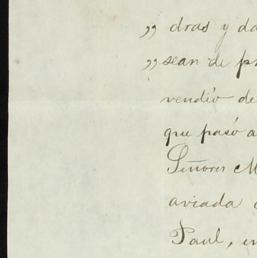 „ dras y da
„ sean de pr
vendió de
que pasó a
Señores M
aviada
Paul, en